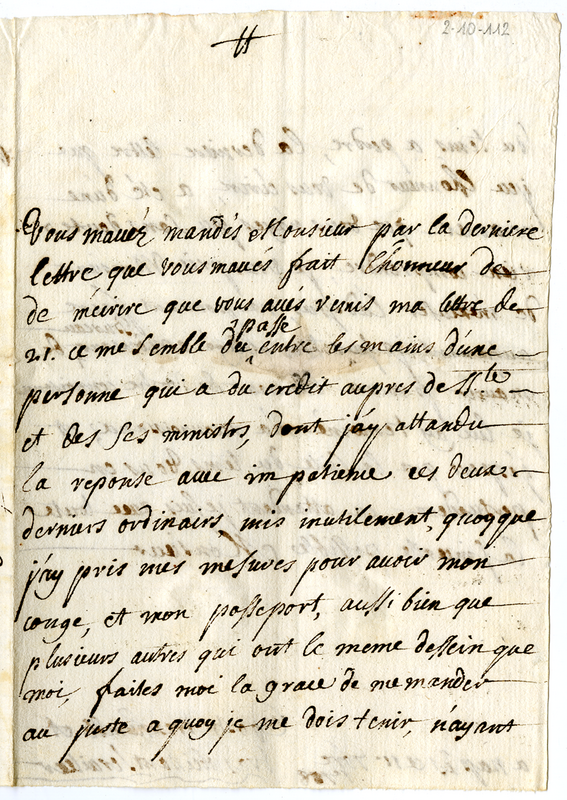 2-10-112
Vous mavéz mandés Monsieur par la derniere
lettre que vous mavés frait lhonneur de
de mécrire que vous avés remis ma lettre de
21. ce me semble du passe entre les mains dune
personne qui a du credit aupres de S.S.te
et des ses ministrs, dont j'ay attandu
la reponse avec impatience ces deux
derniers ordinairs, mis inutilement, quoyque
j'ay pris mes mesures pour avoir mon
conge, et mon passeport, aussi bien que
plusieurs autres qui ont le meme dessein que
moi, faites moi la grace de me mander
au juste a quoy je me dois tenir, n'ayant